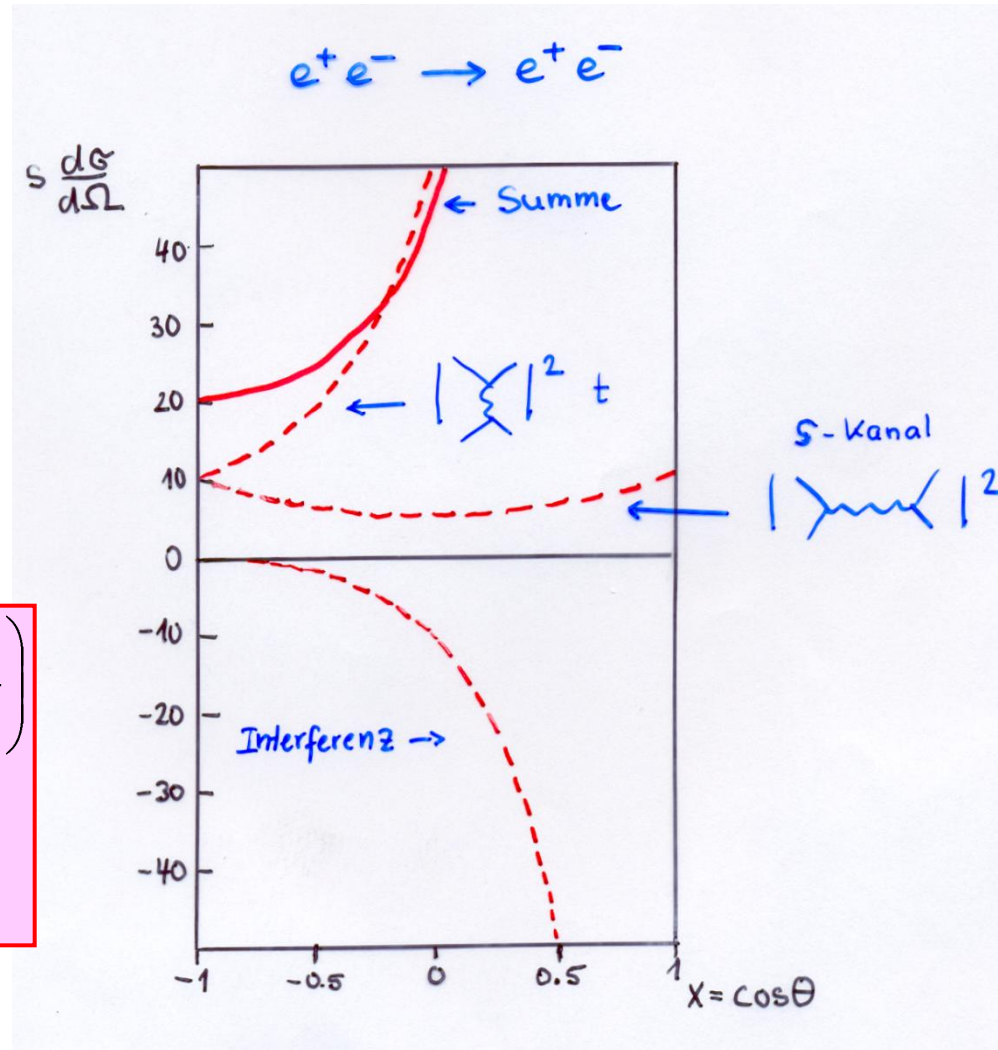 e⁺ e⁻ → e⁺ e⁻
s dσ/dΩ
← Summe
40
30
20
10
0
-10
-20
-30
-40
← | |² t
s-Kanal
← | |²
Interferenz →
-1 -0.5 0 0.5 1
x = cosθ